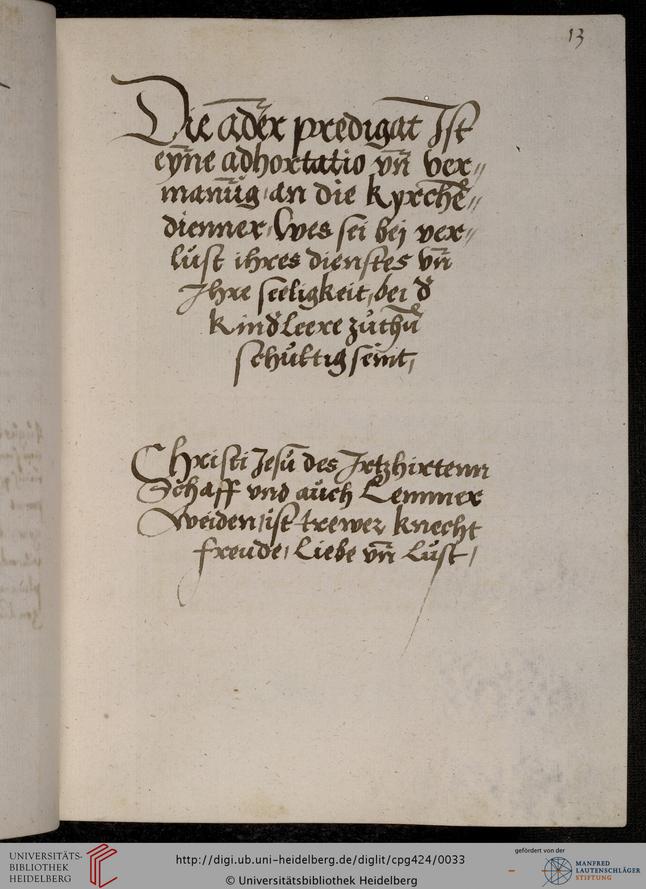 13
Die ader predigat Ist
eyne adhortatio vn̄ ver⸗
manūg, an die kyrchē⸗
dienner, Wes sei bej ver⸗
lust ihres dienstes vn̄
Ihre seeligkeit, bei d̄
kindleere zuthū
schuldig seint,
Christi Jesu des Irtzhirtenn
Schaff vnd auch Lemmer
Weiden, ist trewer knecht
freude, Liebe vn̄ Lust,
UNIVERSITÄTS-
BIBLIOTHEK
HEIDELBERG
http://digi.ub.uni-heidelberg.de/diglit/cpg424/0033
© Universitätsbibliothek Heidelberg
gefördert von der
MANFRED
LAUTENSCHLÄGER
STIFTUNG